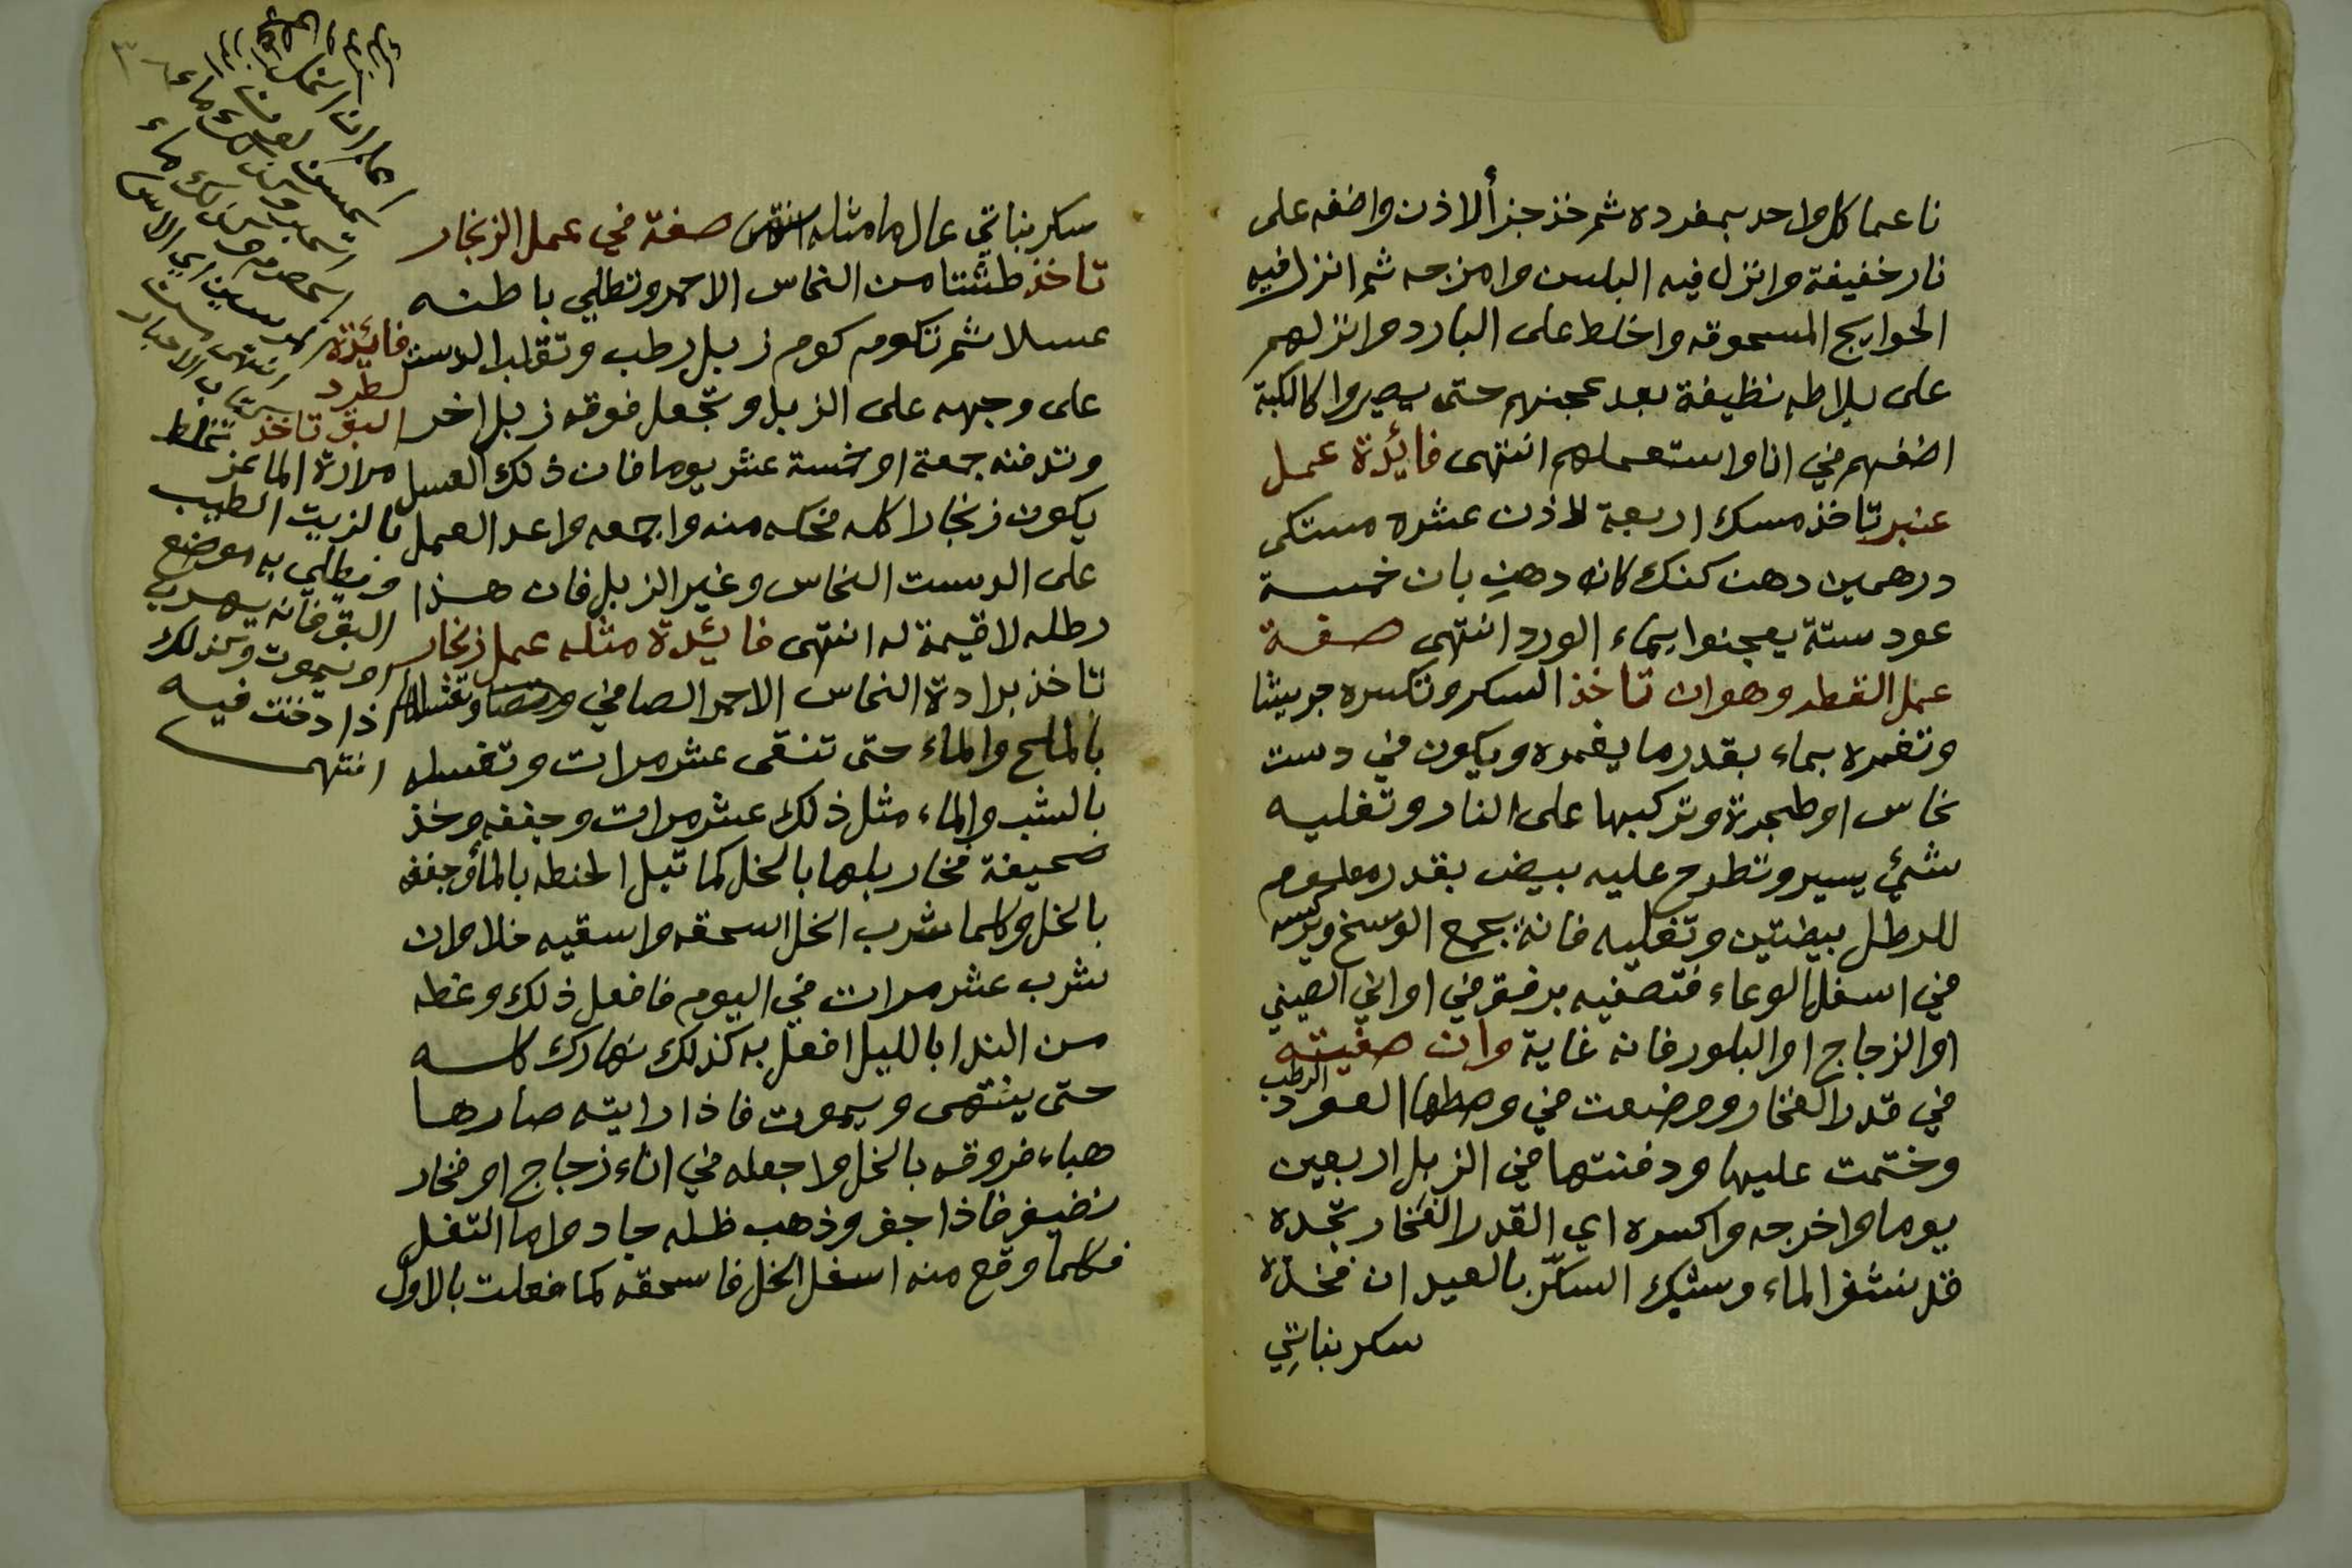 ناعما كل واحد بمفرده ثم خذ جزأ لاذن واضفه على
نار خفيفة وانزل فيه البلسن وامزجه ثم انزل فيه
الحوايج المسحوقه واخلط على البارد وانزلهم
على بلاطه نظيفة بعد عجنهم حتى يصيروا كالكبة
اضفهم في انا واستعملهم انتهى فائدة عمل
عنبر تاخذ مسك اربعة لاذن عشره مستكى
درهمين دهن كنك كانه دهن بان خمسة
عود ستة يعجنوا بماء الورد انتهى صفة
عمل القطر وهو ان تاخذ السكر وتكسره جريشا
وتغمره بماء بقدر ما يغمره ويكون في دست
نحاس او طنجرة وتركبها على النار وتغليه
شئ يسير وتطرح عليه بيض بقدر معلوم
للرطل بيضتين وتغليه فانه يجمع الوسخ ويرسه
في اسفل الوعاء فتصفيه برفق في اواني الصيني
او الزجاج او البلور فانه غاية وان صفيته
في قدر الفخار ووضعت في وسطها العود الرطب
وختمت عليها ودفنتها في الزبل اربعين
يوما واخرجه واكسره اي القدر الفخار تجده
قد نشف الماء وشبك السكّر بالعيدان فخذه
سكر نباتي
سكر نباتي عال ما مثله انتهى صفة في عمل الزنجار
تاخذ طشتا من النحاس الاحمر وتطلي باطنه
عسلا ثم تكومه كوم زبل رطب وتقلب الدست
على وجهه على الزبل وتجعل فوقه زبل اخر
وتدفنه جمعة او خمسة عشر يوما فان ذلك العسل
يكون زنجارا كله فحكه منه واجمعه واعد العمل
على الدست النحاس وغير الزبل فان هذا
رطله لا قيمة له انتهى فائدة مثله عمل زنجار
تاخذ برادة النحاس الاحمر الصافي وتغسلها
بالملح والماء حتى تنقى عشر مرات وتغسله
بالشب والماء مثل ذلك عشر مرات وجففه وخذ
صحيفة فخار بلها بالخل كما تبل الحنطه بالمأ وجففه
بالخل وكلما شرب الخل اسحقه واسقيه خلا وان
شرب عشر مرات في اليوم فافعل ذلك وغطه
من الندا بالليل افعل به كذلك نهارك كله
حتى ينتهى ويموت فاذا رايته صار ها
هباء فروقه بالخل واجعله في اناء زجاج او فخار
نضيف فاذا جف وذهب ظله جاد واما التفل
فكلما وقع منه اسفل الخل فاسحقه كما فعلت بالاول
فائدة
لطرد
البق تاخذ
مرارة الماعز تخلط
بالزيت الطيب
ويطلي به موضع
البق فانه يهرب
او يموت وكذلك
اذا دفنت فيه
انتهى